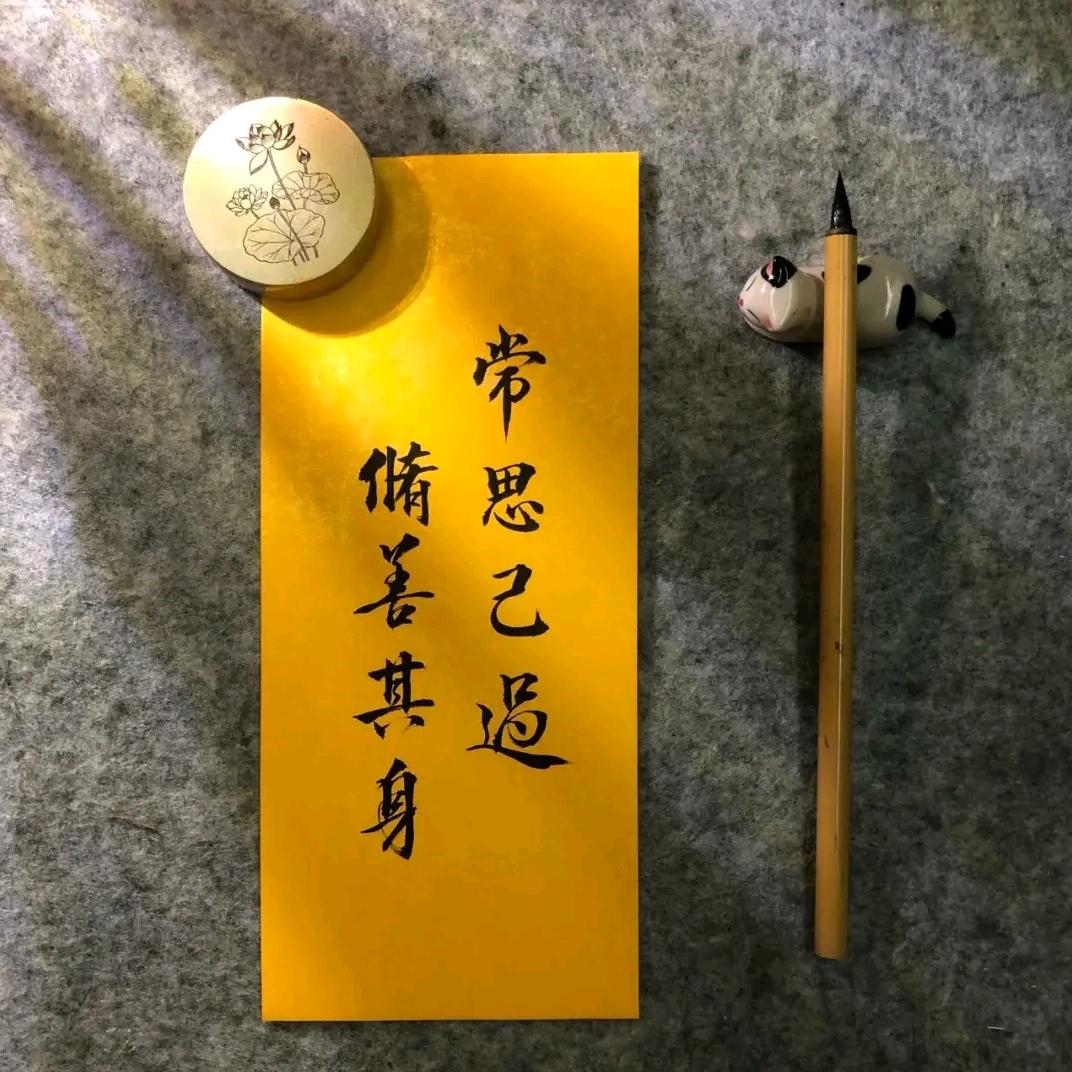 常思己過
脩善其身